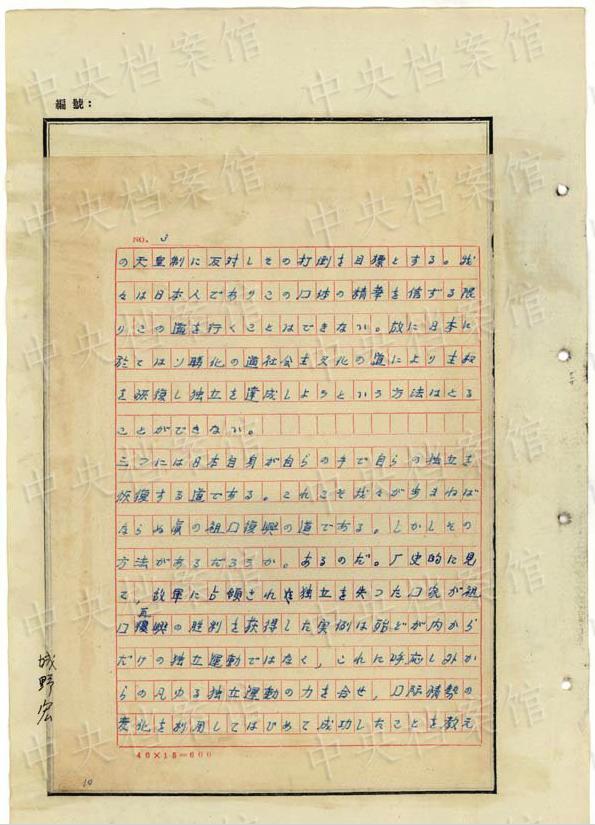 編號：
NO. 3
の天皇制に反対してその打倒を目標とする。我
々は日本人でありこの口体の精華を信ずる限
りこの道を行くことはできない。故に日本に
於てはソ聯化の道社会主义化の道により主权
を恢復し独立を達成しようという方法はとる
ことができない。
三つには日本自身が自らの手で自らの独立を
恢復する道である。これこそ我々が歩まねば
ならぬ眞の祖口復興の道である。しかしその
方法があるだろうか。あるのだ。厂史的に見
て，敌軍に占領され独立を失つた口家が祖
口再興の勝利を获得した実例は殆どが内から
だけの独立運動ではなく，これに呼応し外か
らの凡ゆる独立運動の力を合せ，口际情勢の
変化を利用してはじめて成功したことを教え
40×15=600
城野宏
10
中央档案馆